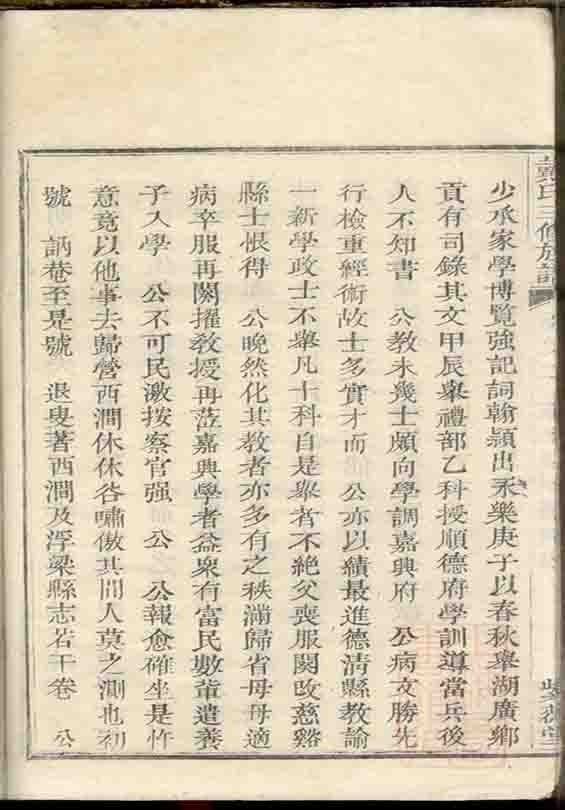 戴氏三修族譜
少承家學博覽強記詞翰穎出永樂庚子以春秋舉湖廣鄉
貢有司錄其文甲辰舉禮部乙科授順德府學訓導當兵後
人不知書　公教未幾士頗向學調嘉興府　公病文勝先
行檢重經術故士多實才而　公亦以績最進德清縣教諭
一新學政士不舉凡十科自是舉者不絕父喪服闋改慈谿
縣士恨得　公晚然化其教者亦多有之秩滿歸省母母適
病卒服再闋擢教授再蒞嘉興學者益衆有富民數輩遣養
子入學　公不可民激按察官强　公　公報愈確坐是忤
意竟以他事去歸營西澗休休谷嘯傲其間人莫之測也初
號　訥菴至是號　退叟著西澗及浮梁縣志若干卷　公